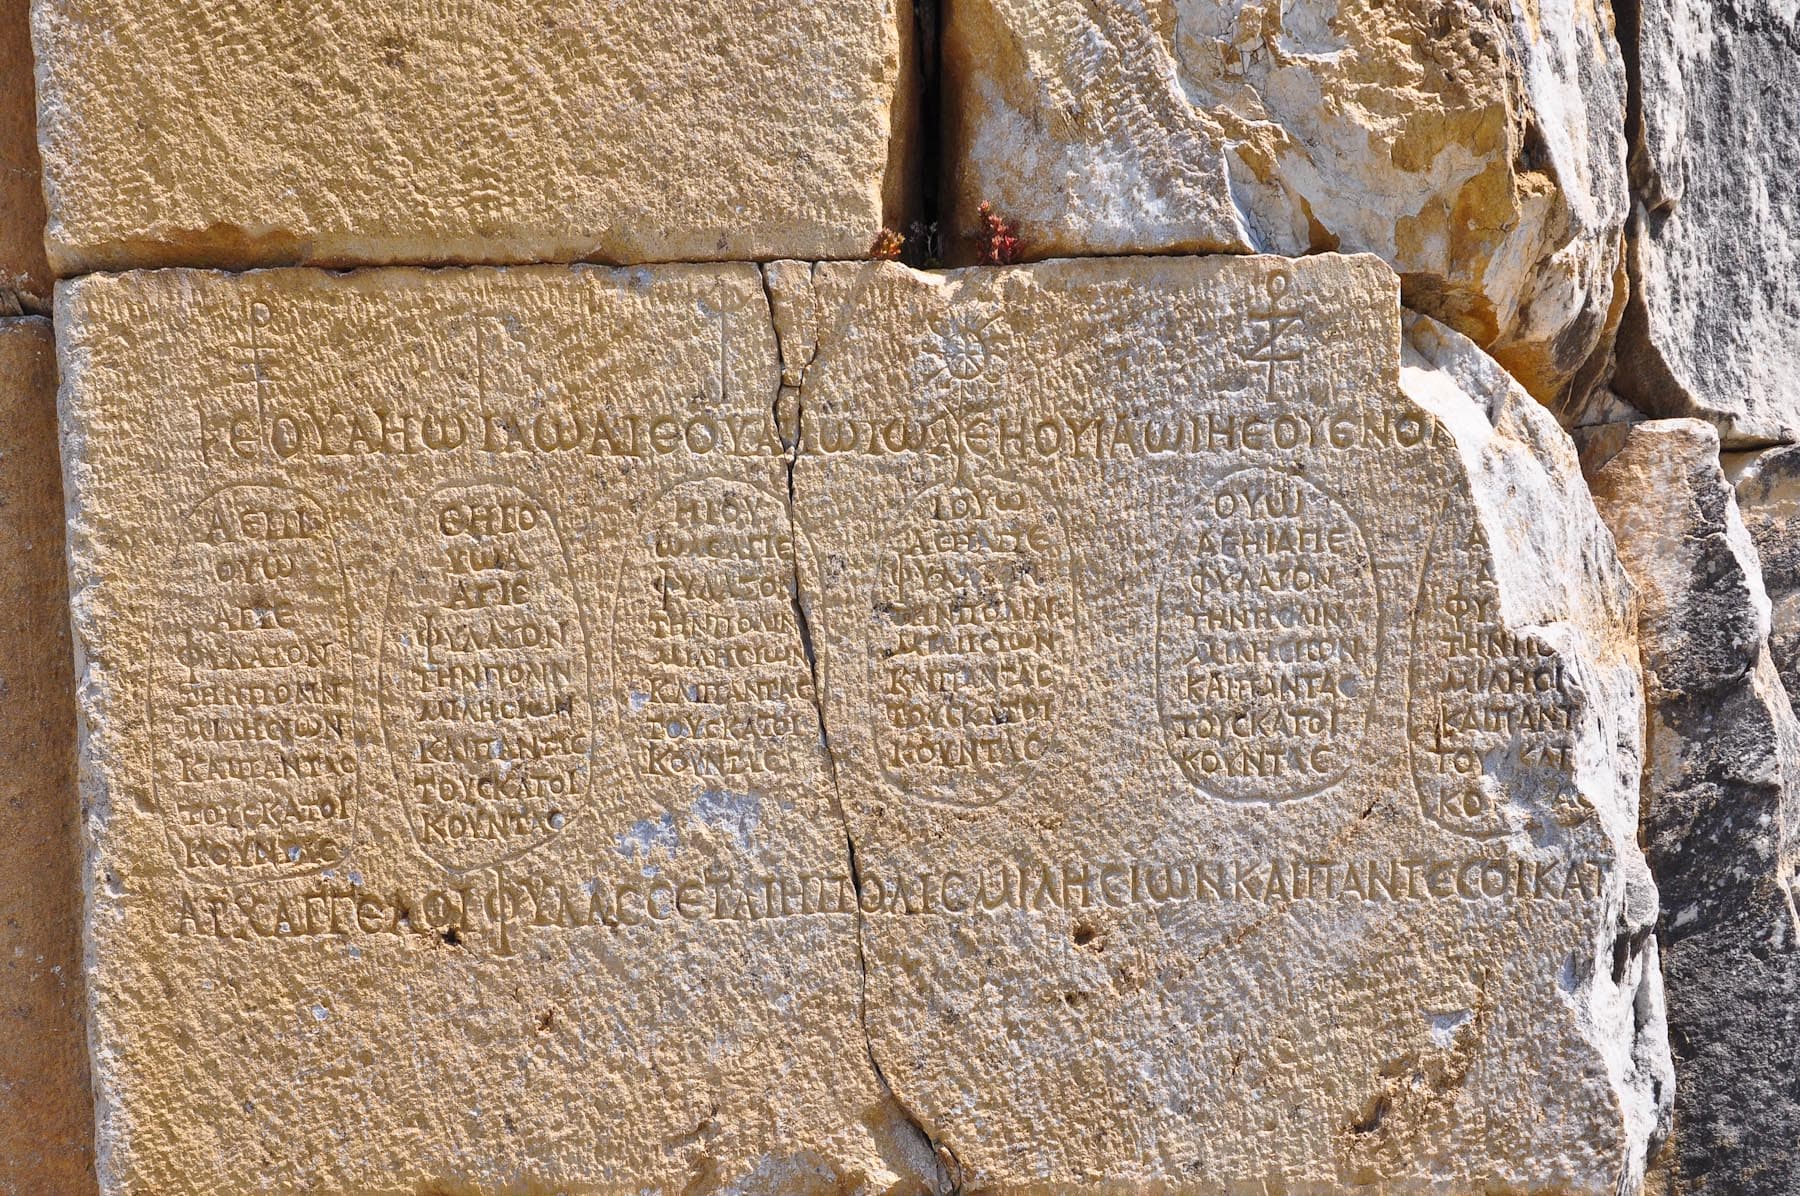 ΙΕΟΥΑΗΩΙΑΩΑΙΕΟΥΑΗΩΙΩΑΕΗΟΥΙΑΩΙΗΕΟΥΕΝΟ
ΑΕΗΙ
ΟΥΩ
ΑΓΙΕ
ΦΥΛΑΞΟΝ
ΤΗΝΠΟΛΙΝ
ΜΙΛΗCΙΩΝ
ΚΑΙΠΑΝΤΑC
ΤΟΥCΚΑΤΟΙ
ΚΟΥΝΤΑC
ΕΗΙΟ
ΥΩΑ
ΑΓΙΕ
ΦΥΛΑΞΟΝ
ΤΗΝΠΟΛΙΝ
ΜΙΛΗCΙΩΝ
ΚΑΙΠΑΝΤΑC
ΤΟΥCΚΑΤΟΙ
ΚΟΥΝΤΑC
ΗΙΟΥ
ΩΑΕΑΓΙΕ
ΦΥΛΑΞΟΝ
ΤΗΝΠΟΛΙΝ
ΜΙΛΗCΙΩΝ
ΚΑΙΠΑΝΤΑC
ΤΟΥCΚΑΤΟΙ
ΚΟΥΝΤΑC
ΙΟΥΩ
ΑΕΗΑΓΙΕ
ΦΥΛΑΞΟΝ
ΤΗΝΠΟΛΙΝ
ΜΙΛΗCΙΩΝ
ΚΑΙΠΑΝΤΑC
ΤΟΥCΚΑΤΟΙ
ΚΟΥΝΤΑC
ΟΥΩΙ
ΑΕΗΙΑΓΙΕ
ΦΥΛΑΞΟΝ
ΤΗΝΠΟΛΙΝ
ΜΙΛΗCΙΩΝ
ΚΑΙΠΑΝΤΑC
ΤΟΥCΚΑΤΟΙ
ΚΟΥΝΤΑC
Α
ΦΥΛ
ΤΗΝΠΟ
ΜΙΛΗCΙ
ΚΑΙΠΑΝΤ
ΤΟΥ ΚΑΤ
ΚΟ ΑC
ΑΡΧΑΓΓΕΛΟΙΦΥΛΑCCΕΤΑΙΗΠΟΛΙCΜΙΛΗCΙΩΝΚΑΙΠΑΝΤΕCΟΙΚΑΤ